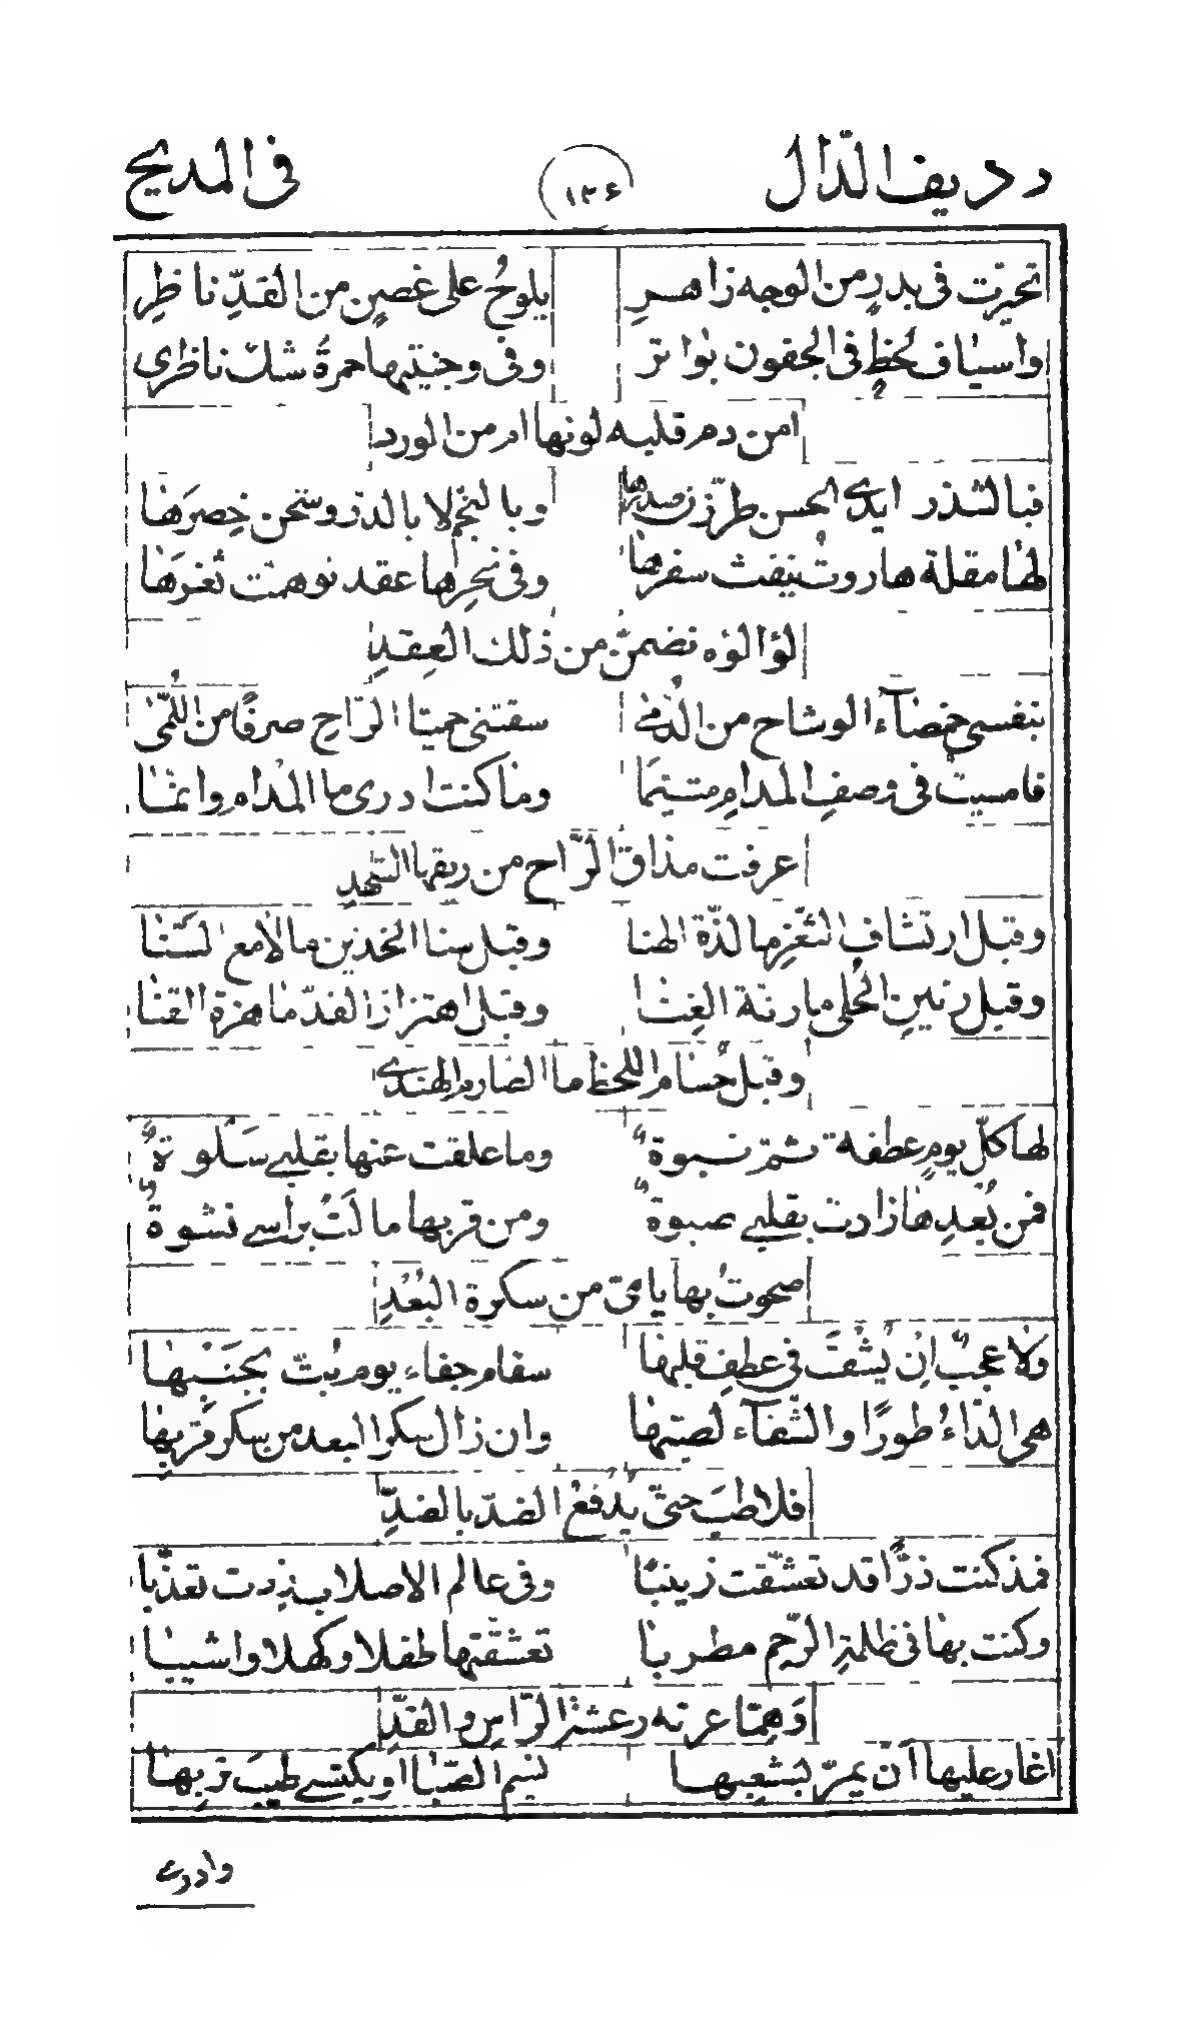 د رديف الدّال ١٣٤ فى المديح
تحيّرت فى بدرٍ من الوجه زاهرِ يلوحُ على غصنٍ من القدِّ ناظِرِ
واسياف لحظٍ فى الجفون بواتر وفى وجنيتها حمرةٌ شكّ ناظرى
امن دم قلبه لونها ام من الورد
فبالشذر ايدى الحسن طرّزن صدرها وبالنجم لا بالدر وشحن خِصرَها
لها مقلة هاروتُ ينفث سفرها وفى نحرِها عقد توهمت ثغرَها
لؤالؤه نضمنّ من ذلك العِقدِ
بنفسى خمضآء الوشاح من الدُّمى سقتنى حميّا الرّاح صرفًا من اللُّمى
فامسيت فى وصفِ المدامِ متيّمًا وما كنت ادرى ما المدام وانما
عرفت مذاق الرّاح من ريقها الشهدِ
وقبل ارتشافِ الثغرِ ما لذّة الهنا وقبل سنا الخدين ما لامع السّنا
وقبل رنينِ الحُلى ما رنّة الغِنا وقبل اهتزاز القدّ ما هزة القنا
وقبل حُسام اللحظ ما الصارم الهندى
لها كلّ يومٍ عطفة ثمّ نبوةٌ وما علقت عنها بقلبى سَلوةٌ
فمن بُعدِها زادت بقلبى صبوةٌ ومن قربها مالَتُ براسى نشوةٌ
صحوتُ بها يا مىّ من سكرة البُعُدِ
ولا عجبٌ ان يُشفَ فى عطفِ قلبها سقام جفاء يوم بُثّ بجَنبها
هى الدّاءُ طورًا والشّفآء لصبّها وان زال سكرا البعد من سكر قربها
فلا طبَ حتى يُدفعُ الضدّ بالضدِّ
فمذ كنت ذرًّا قد تعشّقت زينبًا وفى عالم الاصلاب زدت تعذّبا
وكنت بها فى ظلمةِ الرّحم مطربا تعشقتها طفلا وكهلا واشيبا
وَهِمًّا عرته رعشة الرّاسِ والقدِّ
اغار عليها ان يمرّ بشعبها نسيم الصّبا او يكتسى طيبَ تربها
وادرى